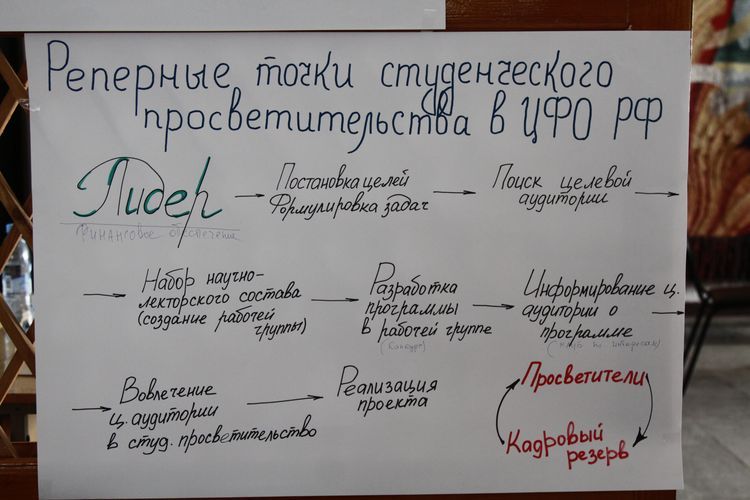 Реперные точки студенческого
просветительства в ЦФО РФ
Лидер
финансовое обеспечение
Постановка целей
Формулировка задач
Поиск целевой
аудитории
Набор научно-
лекторского состава
(создание рабочей
группы)
Разработка
программы
в рабочей группе
(конкурс)
Информирование ц.
аудитории о
программе
Вовлечение
ц. аудитории
в студ. просветительство
Реализация
проекта
Просветители
Кадровый
резерв